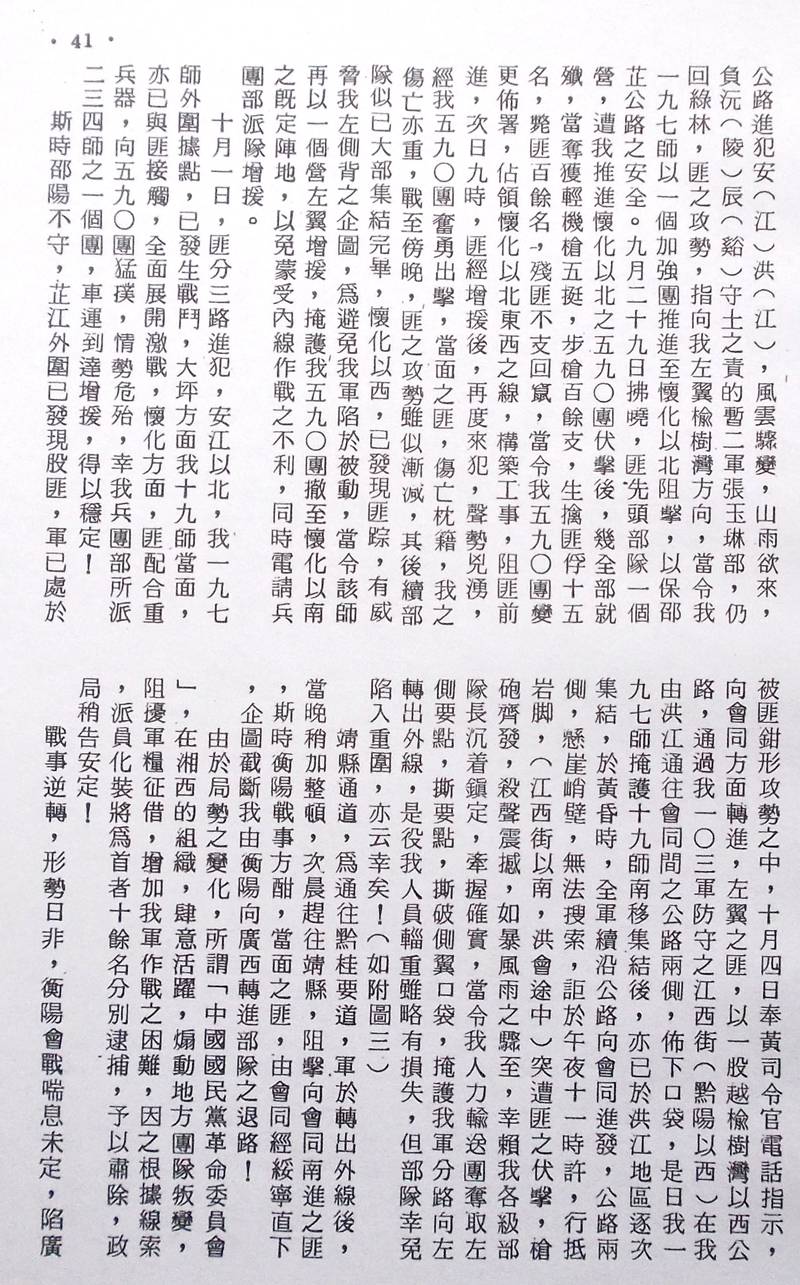 • 41 •
公路進犯安（江）洪（江），風雲驟變，山雨欲來，
負沅（陵）辰（谿）守土之責的暫二軍張玉琳部，仍
回綠林，匪之攻勢，指向我左翼楡樹灣方向，當令我
一九七師以一個加強團推進至懷化以北阻擊，以保邵
芷公路之安全。九月二十九日拂曉，匪先頭部隊一個
營，遭我推進懷化以北之五九〇團伏擊後，幾全部就
殲，當奪獲輕機槍五挺，步槍百餘支，生擒匪俘十五
名，斃匪百餘名，殘匪不支回竄，當令我五九〇團變
更佈署，佔領懷化以北東西之線，構築工事，阻匪前
進，次日九時，匪經增援後，再度來犯，聲勢兇湧，
經我五九〇團奮勇出擊，當面之匪，傷亡枕籍，我之
傷亡亦重，戰至傍晚，匪之攻勢雖似漸減，其後續部
隊似已大部集結完畢，懷化以西，已發現匪踪，有威
脅我左側背之企圖，爲避免我軍陷於被動，當令該師
再以一個營左翼增援，掩護我五九〇團撤至懷化以南
之旣定陣地，以免蒙受內線作戰之不利，同時電請兵
團部派隊增援。
十月一日，匪分三路進犯，安江以北，我一九七
師外圍據點，已發生戰鬥，大坪方面我十九師當面，
亦已與匪接觸，全面展開激戰，懷化方面，匪配合重
兵器，向五九〇團猛撲，情勢危殆，幸我兵團部所派
二三四師之一個團，車運到達增援，得以穩定！
斯時邵陽不守，芷江外圍已發現股匪，軍已處於
被匪鉗形攻勢之中，十月四日奉黃司令官電話指示，
向會同方面轉進，左翼之匪，以一股越楡樹灣以西公
路，通過我一〇三軍防守之江西街（黔陽以西）在我
由洪江通往會同間之公路兩側，佈下口袋，是日我一
九七師掩護十九師南移集結後，亦已於洪江地區逐次
集結，於黃昏時，全軍續沿公路向會同進發，公路兩
側，懸崖峭壁，無法搜索，詎於午夜十一時許，行抵
岩脚，（江西街以南，洪會途中）突遭匪之伏擊，槍
砲齊發，殺聲震撼，如暴風雨之驟至，幸賴我各級部
隊長沉着鎭定，牽握確實，當令我人力輸送團奪取左
側要點，撕要點，撕破側翼口袋，掩護我軍分路向左
轉出外線，是役我人員輜重雖略有損失，但部隊幸免
陷入重圍，亦云幸矣！（如附圖三）
靖縣通道，爲通往黔桂要道，軍於轉出外線後，
當晚稍加整頓，次晨趕往靖縣，阻擊向會同南進之匪
，斯時衡陽戰事方酣，當面之匪，由會同經綏寧直下
，企圖截斷我由衡陽向廣西轉進部隊之退路！
由於局勢之變化，所謂「中國國民黨革命委員會
」，在湘西的組織，肆意活躍，煽動地方團隊叛變，
阻擾軍糧征借，增加我軍作戰之困難，因之根據線索
，派員化裝將爲首者十餘名分別逮捕，予以肅除，政
局稍告安定！
戰事逆轉，形勢日非，衡陽會戰喘息未定，陷廣